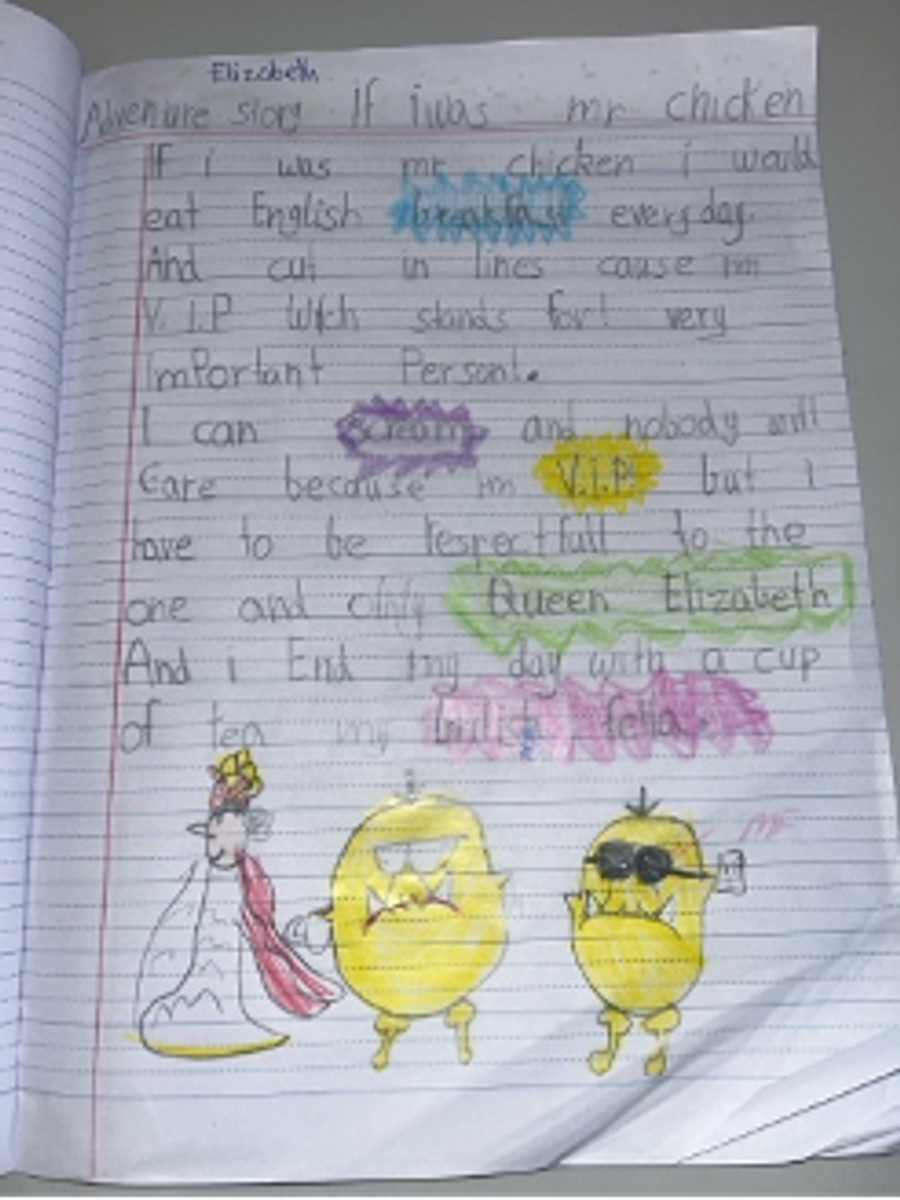 Elizabeth
Adventure story If i was mr chicken
If i was mr chicken i would
eat English breakfast everyday.
And cut in lines cause im
V.I.P Wich stands for! very
Important Person!.
I can scream and nobody will
Care because im V.I.P! but i
have to be respectfull to the
one and only Queen Elizabeth
And i End my day with a cup
of tea my british fella.